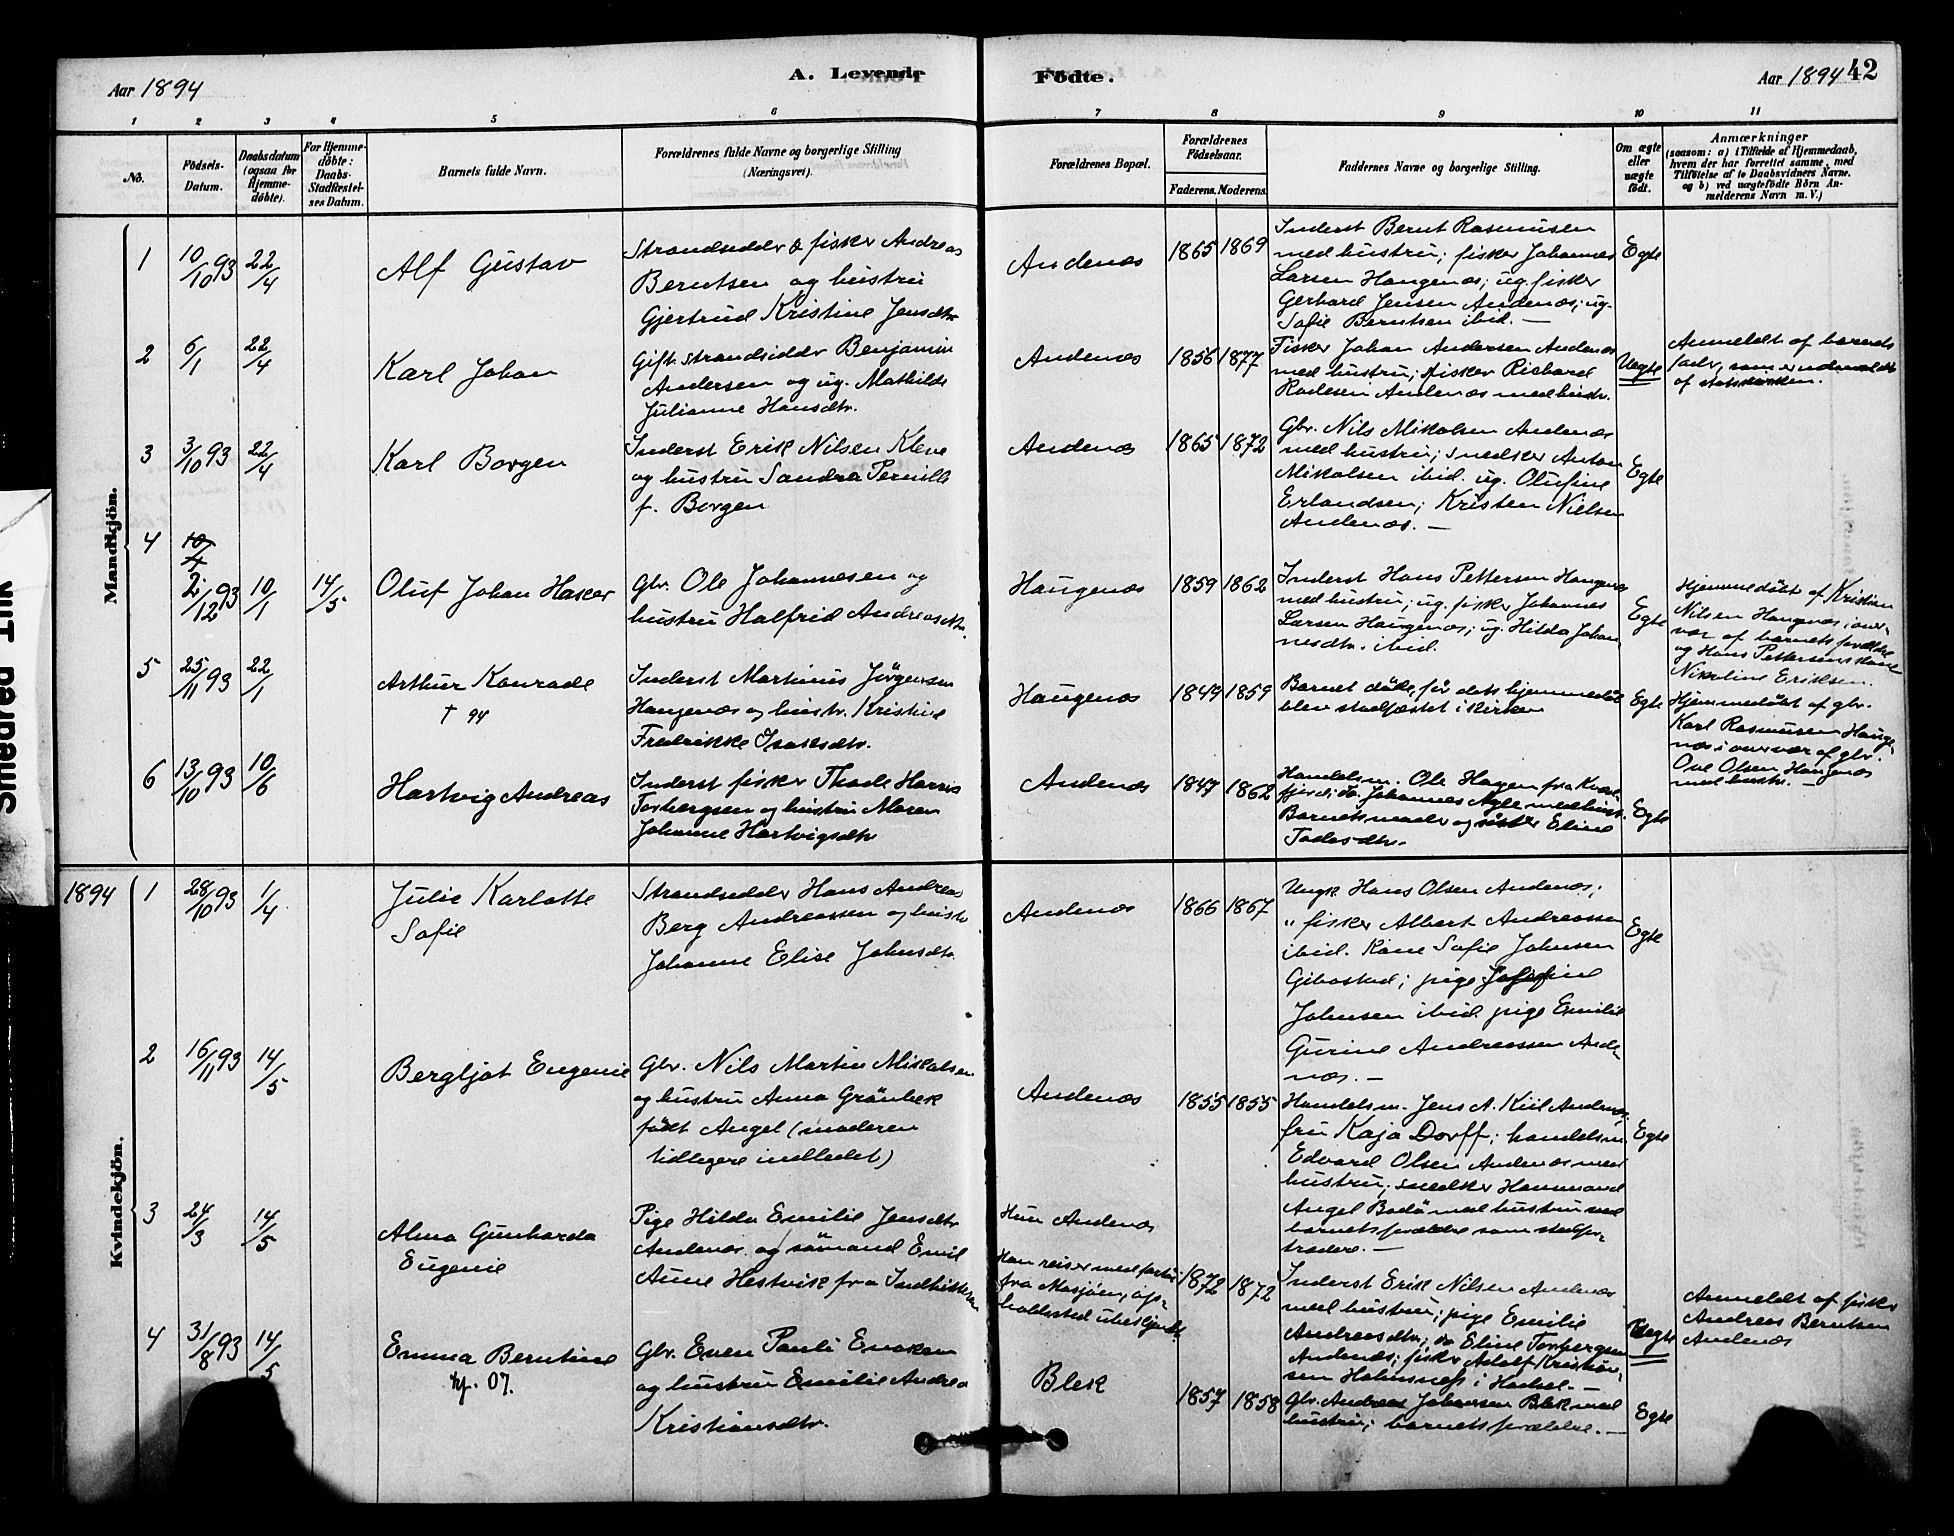 Aar 1894
A. Levende
Födte.
Aar 1894
42
1 2 3 4 5 6 7 8 9 10 11
No.
Födsels-
Datum.
Daabsdatum
(ogsaa for
Hjemme-
döbte).
For Hjemme-
döbte:
Daabs-
Stadfæstel-
ses Datum.
Barnets fulde Navn.
Forældrenes fulde Navne og borgerlige Stilling
(Næringsvei).
Forældrenes Bopæl.
Forældrenes
Födselsaar.
Faderens. Moderens.
Faddernes Navne og borgerlige Stilling.
Om ægte
eller
uægte
födt.
Anmærkninger
(saasom: a) i Tilfælde af Hjemmedaab,
hvem der har forrettet samme, med
Tilföielse af to Daabsvidners Navne.
og b) ved uægtefödte Börn An-
melderens Navn m. V.)
Mandkjön.
1
10/10 93
22/4
Alf Gustav
Strandsidder & fisker Andreas
Berntsen og hustru
Gjertrud Kristine Jensdtr
Andenæs
1865 1869
Inderst Bernt Rasmusen
med hustru; fisker Johannes
Larsen Haugenæs; ug. fisker
Gerhard Jensen Andenæs; ug.
Sofie Berntsen ibid. —
Egte
2
6/1
22/4
Karl Johan
Gift strandsidder Benjamin
Andersen og ug. Mathilde
Julianne Hansdtr.
Andenæs
1856 1877
Fisker Johan Andersen Andenæs
med hustru; fisker Richard
Andenæs med hustr.
Uegte
Anmeldt af barnets
fader, som er udmeldt
af statskirken.
3
3/10 93
22/4
Karl Borgen
Inderst Erik Nilsen Kleve
og hustru Sandra Pernille
f. Borgen
Andenæs
1865 1872
Gbr. Nils Mikalsen Andenæs
med hustru; snedker Anton
Mikalsen ibid. ug. Olufine
Erlandsen; Kristen Nielsen
Andenæs. —
Egte
4
10/4
2/12 93
10/1
14/5
Oluf Johan Hasker
Gbr. Ole Johannesen og
hustru Halfrid Andreasdtr.
Haugenæs
1859 1862
Inderst Hans Pettersen Haugenæs
med hustru; ug. fisker Johannes
Larsen Haugenæs; ug. Hilda Johan-
nesdtr. ibid.
Egte
Hjemmedöbt af Kristian
Nilsen Haugnæs i over-
vær af barnets forældre
og Hans Pettersens kone
Nikoline Eriksen.
5
25/11 93
22/1
Arthur Konrade
† 94
Inderst Martinus Jörgensen
Haugenæs og hustr. Kristine
Fredrikke Isaksdtr.
Haugenæs
1849 1859
Barnet döde, för dets hjemmedåb
blev stadfæstet i kirken
Egte
Hjemmedöbt af gbr.
Karl Rasmusen Hauge-
næs i overvær af gbr.
Ove Olsen Haugenæs
med hustr. —
6
13/10 93
10/6
Hartvig Andreas
Inderst fisker Thade Harris
Torbergsen og hustru Maren
Johanne Hartvigsdtr
Andenæs
1847 1862
Handelsm. Ole Hagen fra Kvæ-
fjord; do. Johannes med hustr.
Barnets moder og söster Eline
Tadesdtr.
Egte
1894
Kvindekjön.
1
28/10 93
1/4
Julie Karlotte
Sofie
Strandsidder Hans Andreas
Berg Andreassen og hustr
Johanne Elise Johnsdtr.
Andenæs
1866 1867
Ungk. Hans Olsen Andenæs;
" fisker Albert Andreassen
ibid. Kone Sofie Johnsen
Gibostad; pige Josefine
Johnsen ibid. pige Emilie
Gurine Andreassen Ande-
næs. —
Egte
2
16/11 93
14/5
Bergljot Eugenie
Gbr. Nils Martin Mikalsen
og hustru Anna Grönbek
födt Angel (moderen
tidligere indledet)
Andenæs
1855 1855
Handelsm. Jens A. Kiil Andenæs,
fru Kaja Dorff; handelsm.
Edvard Olsen Andenæs med
hustru; snedker Hammond
Angel Bodö med hustru med
barnets forældre som stedfor-
trædere. —
Egte
3
24/3
14/5
Alma Gunharda
Eugenie
Pige Hilda Emilie Jensdtr
Andenæs og sömand Emil
Aune Hestvik fra Indhitteren
Hun Andenæs
Han reiser med fartöi
fra Mosjöen, op-
holdssted ubeskjendt
1872 1872
Inderst Erik Nilsen Andenæs
med hustru; pige Emilie
Andreasdtr; do Eline Torbergsen
Andenæs; fisker Adolf Kristian-
sen Holmsnes i Hadsel. —
Uegte
Anmeldt af fisker
Andreas Berntsen
Andenæs
4
31/8 93
14/5
Emma Berntine
kf. 07.
Gbr. Even Pauli Enoksen
og hustru Emilie Andrea
Kristiansdtr.
Blek
1857 1858
Gbr. Andreas Johansen Blek med
hustru; barnets forældre. —
Egte